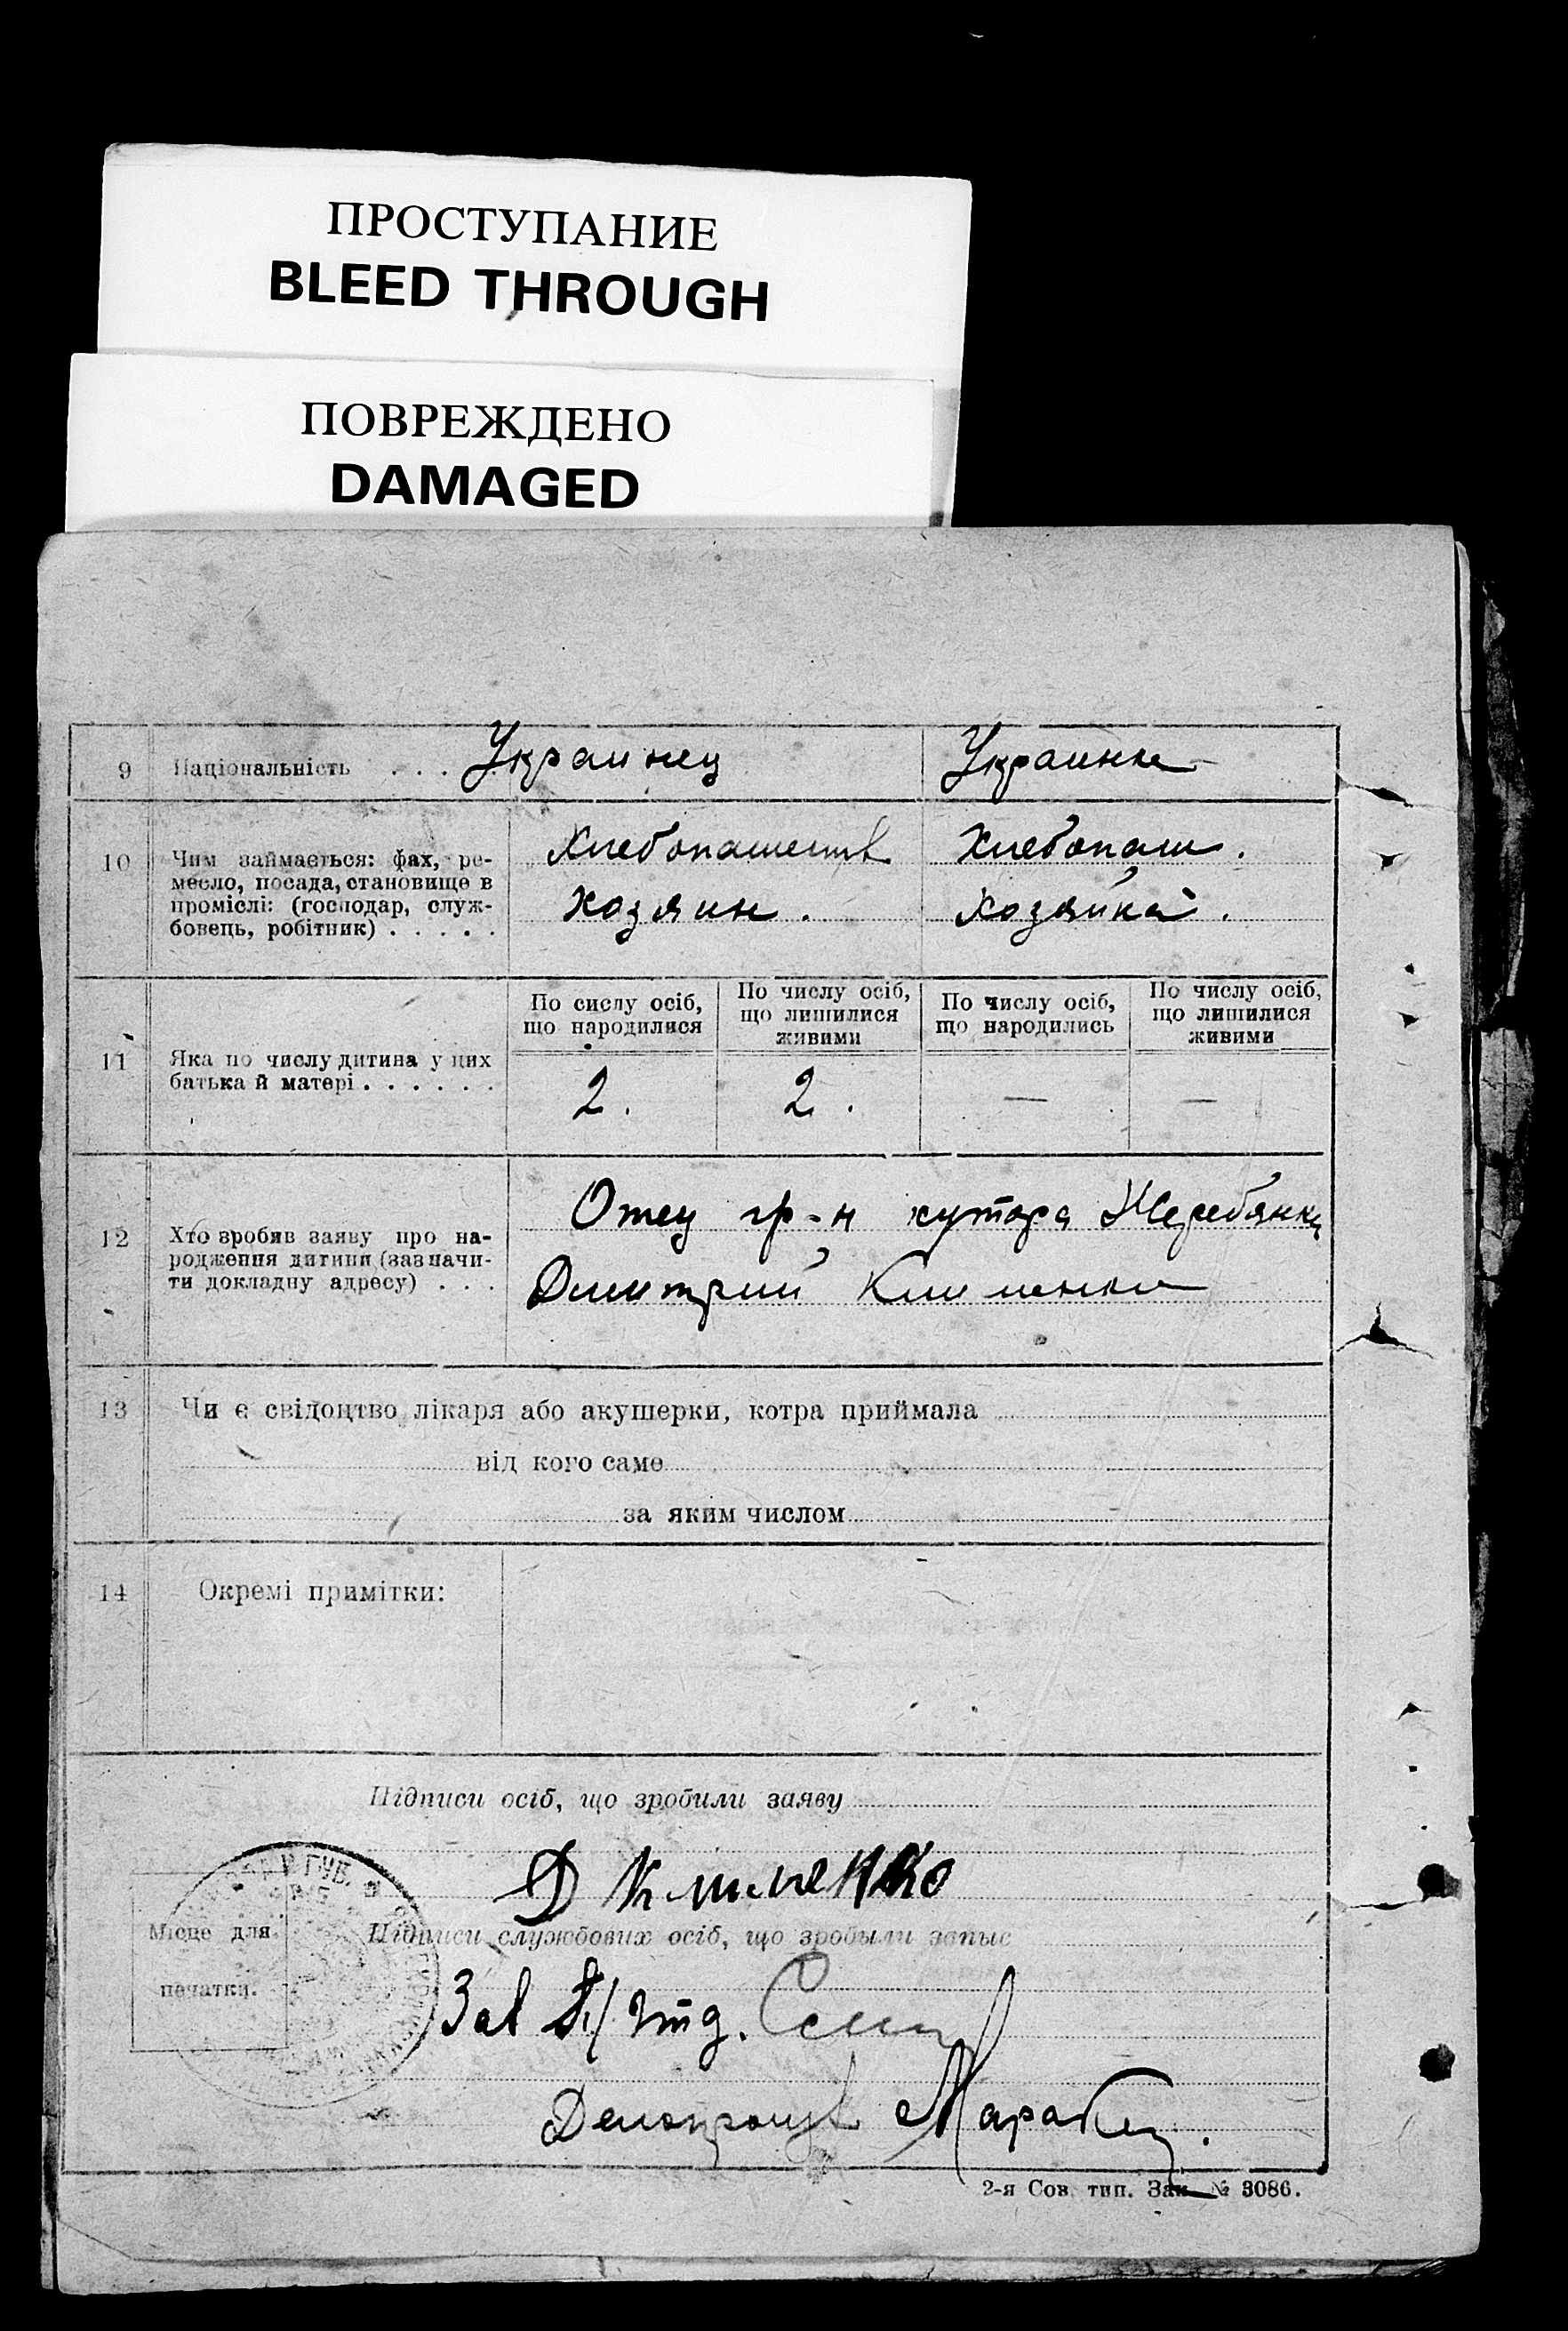 ПРОСТУПАНИЕ
BLEED THROUGH
ПОВРЕЖДЕНО
DAMAGED
9 Національність . . . Украинец Украинка
10 Чим займається: фах, ре-
месло, посада, становище в
проміслі: (господар, служ-
бовець, робітник) . . . . .
Хлебопашеств Хлебопаш.
Хозяин. Хозяйка.
11 Яка по числу дитина у цих
батька й матері . . . . . .
По сислу осіб,
що народилися
По числу осіб,
що лишилися
живими
По числу осіб,
що народились
По числу осіб,
що лишилися
живими
2. 2. — —
12 Хто зробив заяву про на-
родження дитини (зазначи-
ти докладну адресу) . . .
Отец гр-н хутора Жеребянки
Дмитрий Клименко
13 Чи є свідоцтво лікаря або акушерки, котра приймала
від кого саме
за яким числом
14 Окремі примітки:
Підписи осіб, що зробили заяву
Д Клименко
Місце для
печатки.
Підписи службових осіб, що зробыли запыс
Зав
Делопроизв
2-я Сов. тип. Зак. № 3086.